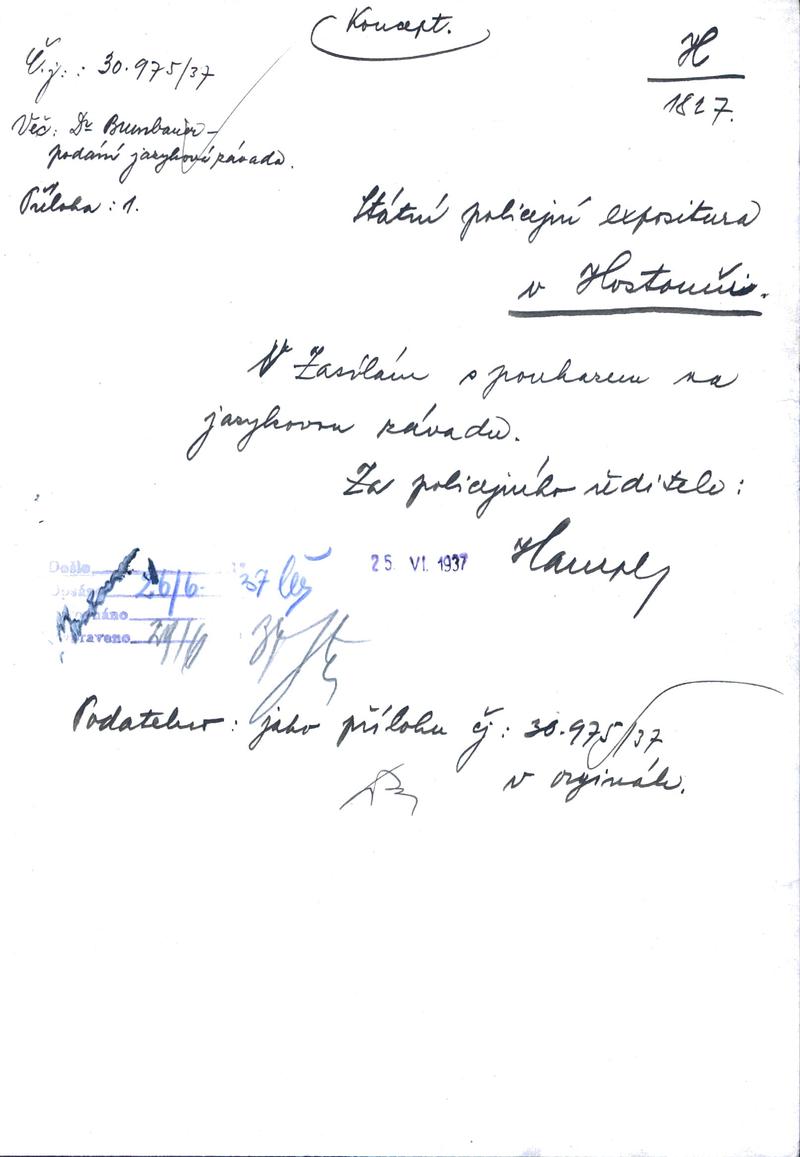 Koncept.
Č.j.: 30.975/37
H
1827.
Věc: Dr Brumbauer –
podání jazyková závada.
Příloha: 1.
Státní policejní expositura
v Hostomici.
Zasílám s poukazem na
jazykovou závadu.
Za policejního ředitele:
25. VI. 1937
Došlo
26/6 37
Vypraveno
Podatelno: jako přílohu čj: 30.975/37
v orginále.